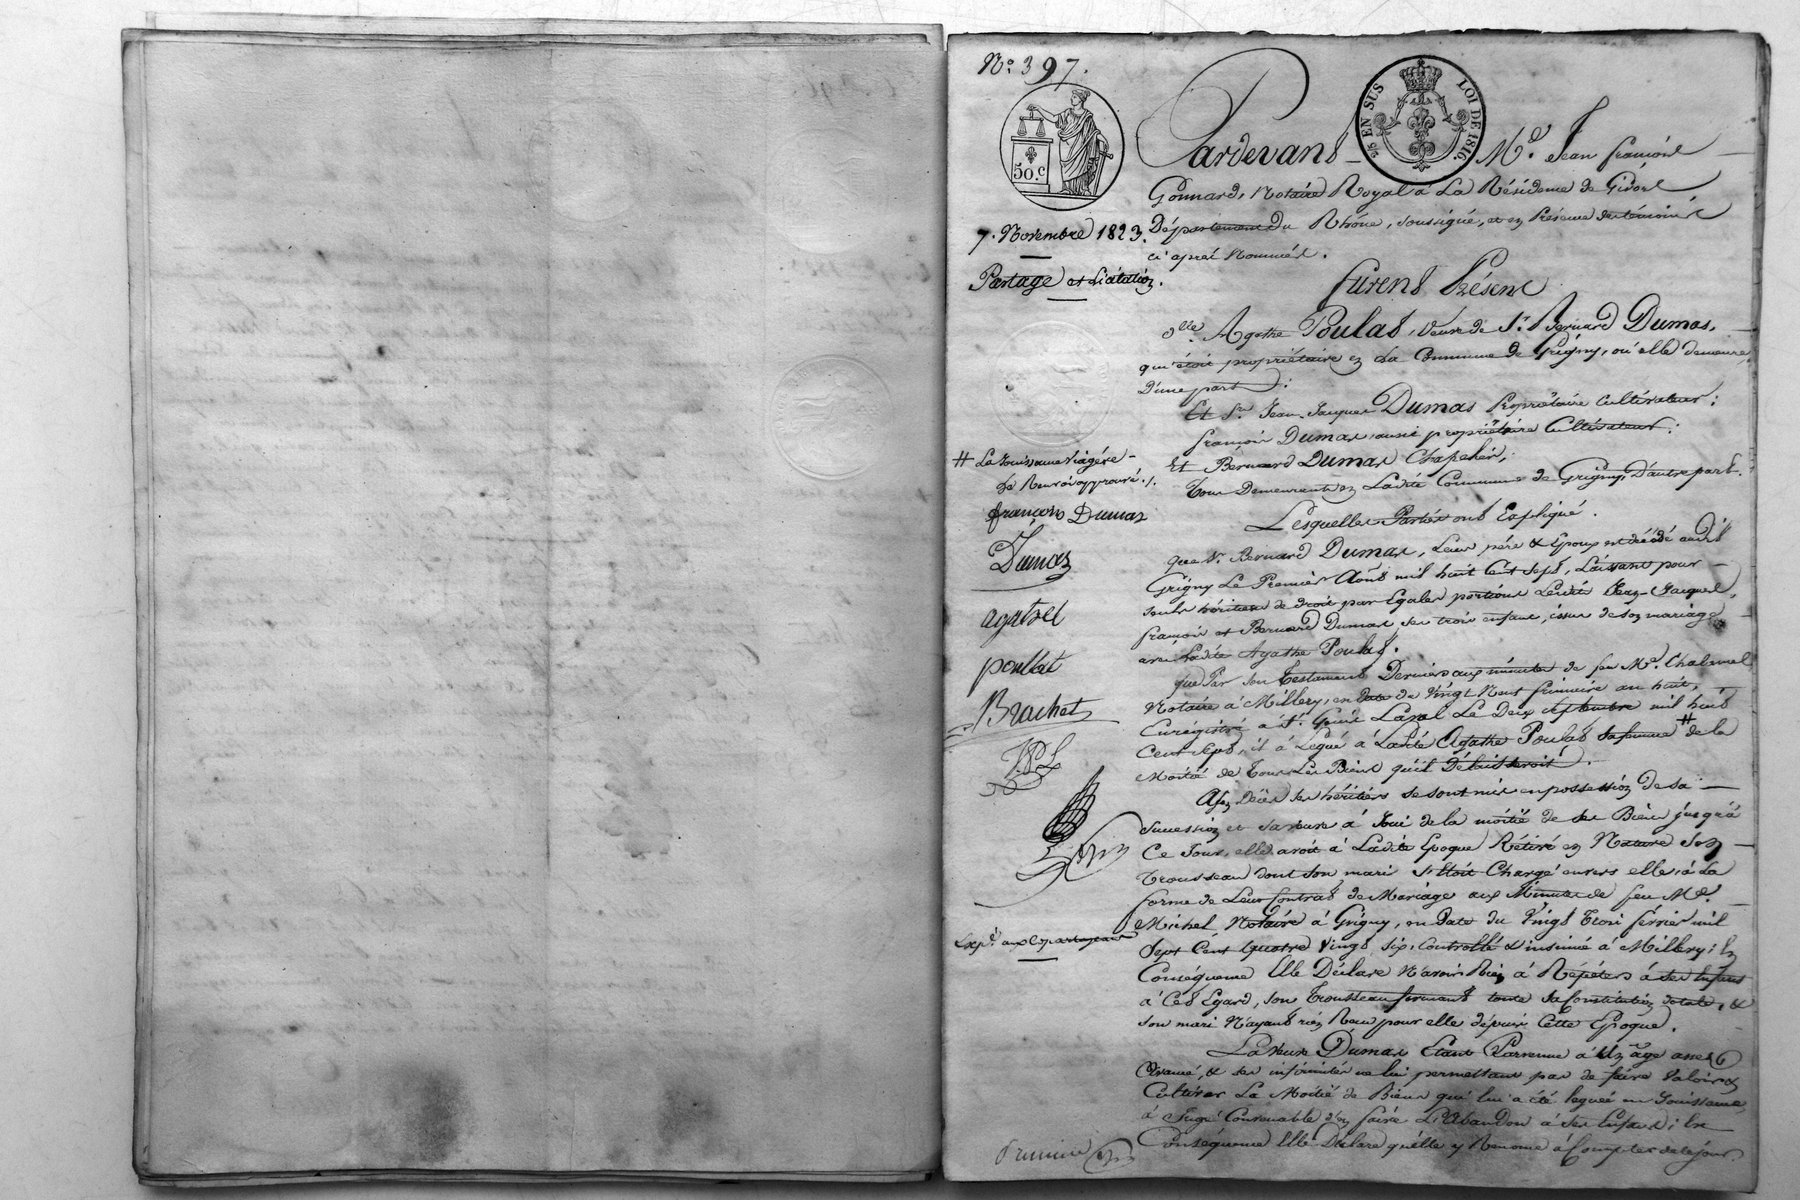 N.o 397.
50.c
25 EN SUS LOI DE 1816.
7. Novembre 1823.
Partage et Licitation.
Pardevant M.e Jean françois
Gonnard, Notaire Royal à La Résidence de Givors
Département du Rhône, soussigné, et en Présence des témoins
ci après Nommés.
furent Présens
d.lle Agathe Poulat, veuve de S.r Bernard Dumas,
qui étoit propriétaire en La Commune de Grigny, où elle demeure,
D'une part;
Et S.rs Jean Jacques Dumas Propriétaire Cultivateur;
françois Dumas aussi propriétaire Cultivateur;
Et Bernard Dumas Chapelier;
Tous Demeurants en Ladite Commune de Grigny, D'autre part.
Lesquelles Parties ont Expliqué.
que S.r Bernard Dumas, Leur père & Epoux est décédé audit
Grigny Le Premier Août mil huit Cent Sept, Laissant pour
seuls héritiers de droit par Egales portions Lesdits Jean-Jacques,
françois et Bernard Dumas ses trois enfans, issus de son mariage
avec Ladite Agathe Poulat.
que Par son Testament Dernier aux minutes de feu M.e Chalemel
Notaire à Millery, en Date du Vingt Neuf frimaire an huit,
Enrégistré à S.t Genis Laval Le Deux septembre mil huit
Cent Sept, il à Légué à Ladite Agathe Poulat sa femme # de la
Moitié de Tous Les Biens qu'il Délaisseroit.
# La Jouissance Viagère
De Renvoi approuvé ./.
françois Dumas
Dumas
agathe
poulat
Brachet
Après Décès ses héritiers se sont mis en possession de sa
Succession et sa veuve à Joui de la moitié de ses Biens jusqu'à
Ce Jour, elle avoit à Ladite Epoque Rétiré en Nature Son
Trousseau dont son mari s'Etoit Chargé envers elle, à La
forme de Leur Contrat de Mariage aux Minutes de feu M.e
Michel, Notaire à Grigny, en Date du Vingt Trois février mil
Sept Cent Quatre Vingt Six, Controllé & insinué à Millery; En
Conséquence Elle Déclare N'avoir Rien à Répéter à ses Enfans
à Cet Egard, son Trousseau formant toute sa Constitution dotale, &
son mari N'ayant rien Reçu pour elle dépuis Cette Epoque.
Exp.é aux Copartageans
La Veuve Dumas Etant Parvenue à Un âge assez
Avancé, & ses infirmités ne lui permettant pas de faire Valoir &
Cultiver La Moitié de Biens qui lui a été leguée en Jouissance,
à Jugé Convenable d'en faire L'Abandon à ses Enfans; En
Conséquence Elle Déclare qu'elle y Renonce à Compter de ce jour.